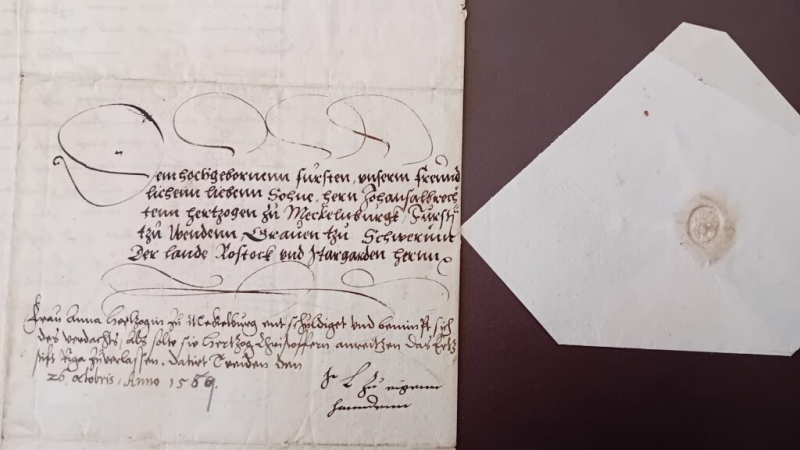 Dem hochgebornenn fursten, unserm freund
lichenn liebenn Sohne, hern Johansalbrech
tenn hertzogen zu Meckelnburgk, Furst
tzu Wendenn Grauen tzu Schwerinn
Der lande Rostock und Stargarden hernn
Frau Anna Hertzogin zu Mekelburg entschuldiget und benimbt sich
des verdachts, als solte sie Hertzog Christoffern anreitzen das Ertz
stifft Riga zuverlassen. datirt Treiden den
26 Octobris, Anno 156
S L zu eigenn
hanndenn